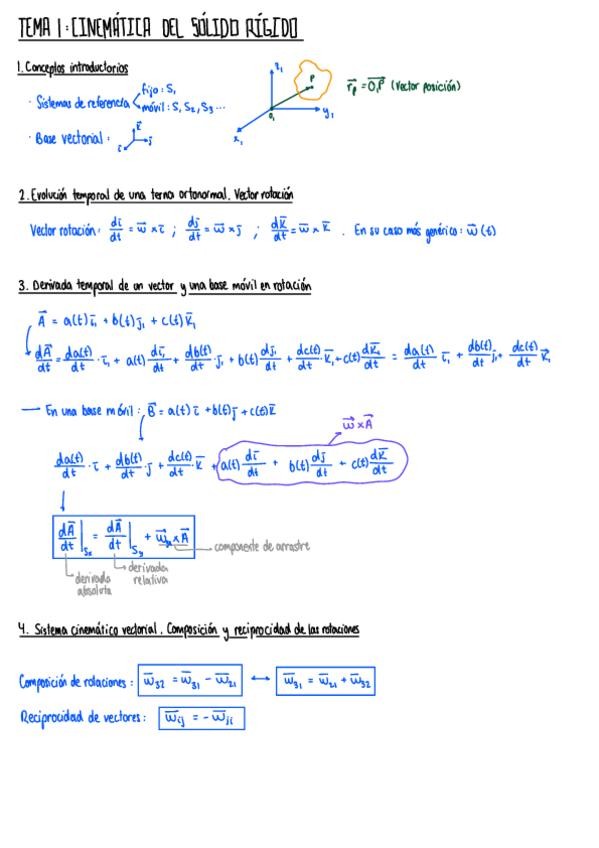 TEMA 1: CINEMÁTICA DEL SÓLIDO RÍGIDO
1. Conceptos introductorios
· Sistemas de referencia < fijo: S₁
móvil: S, S₂, S₃ ...
z₁ P O₁ y₁ x₁
r⃗ₚ = O₁P⃗ (vector posición)
· Base vectorial: k̄ ī j̄
2. Evolución temporal de una terna ortonormal. Vector rotación
Vector rotación: dī/dt = w⃗ × ī ; dj̄/dt = w⃗ × j̄ ; dk̄/dt = w⃗ × k̄ . En su caso más genérico: w⃗(t)
3. Derivada temporal de un vector y una base móvil en rotación
A⃗ = a(t) ī₁ + b(t) j̄₁ + c(t) k̄₁
dA⃗/dt = da(t)/dt · ī₁ + a(t) dī₁/dt + db(t)/dt · j̄₁ + b(t) dj̄₁/dt + dc(t)/dt · k̄₁ + c(t) dk̄₁/dt = da(t)/dt ī₁ + db(t)/dt j̄₁ + dc(t)/dt k̄₁
— En una base móvil: B⃗ = a(t) ī + b(t) j̄ + c(t) k̄
w⃗ × A⃗
da(t)/dt · ī + db(t)/dt · j̄ + dc(t)/dt · k̄ + a(t) dī/dt + b(t) dj̄/dt + c(t) dk̄/dt
dA⃗/dt |Sₓ = dA⃗/dt |Sᵧ + w̄ᵧₓ × A⃗ componente de arrastre
derivada absoluta
derivada relativa
4. Sistema cinemático vectorial. Composición y reciprocidad de las rotaciones
Composición de rotaciones: w̄₃₂ = w̄₃₁ − w̄₂₁ ↔ w̄₃₁ = w̄₂₁ + w̄₃₂
Reciprocidad de vectores: w̄ij = − w̄ji